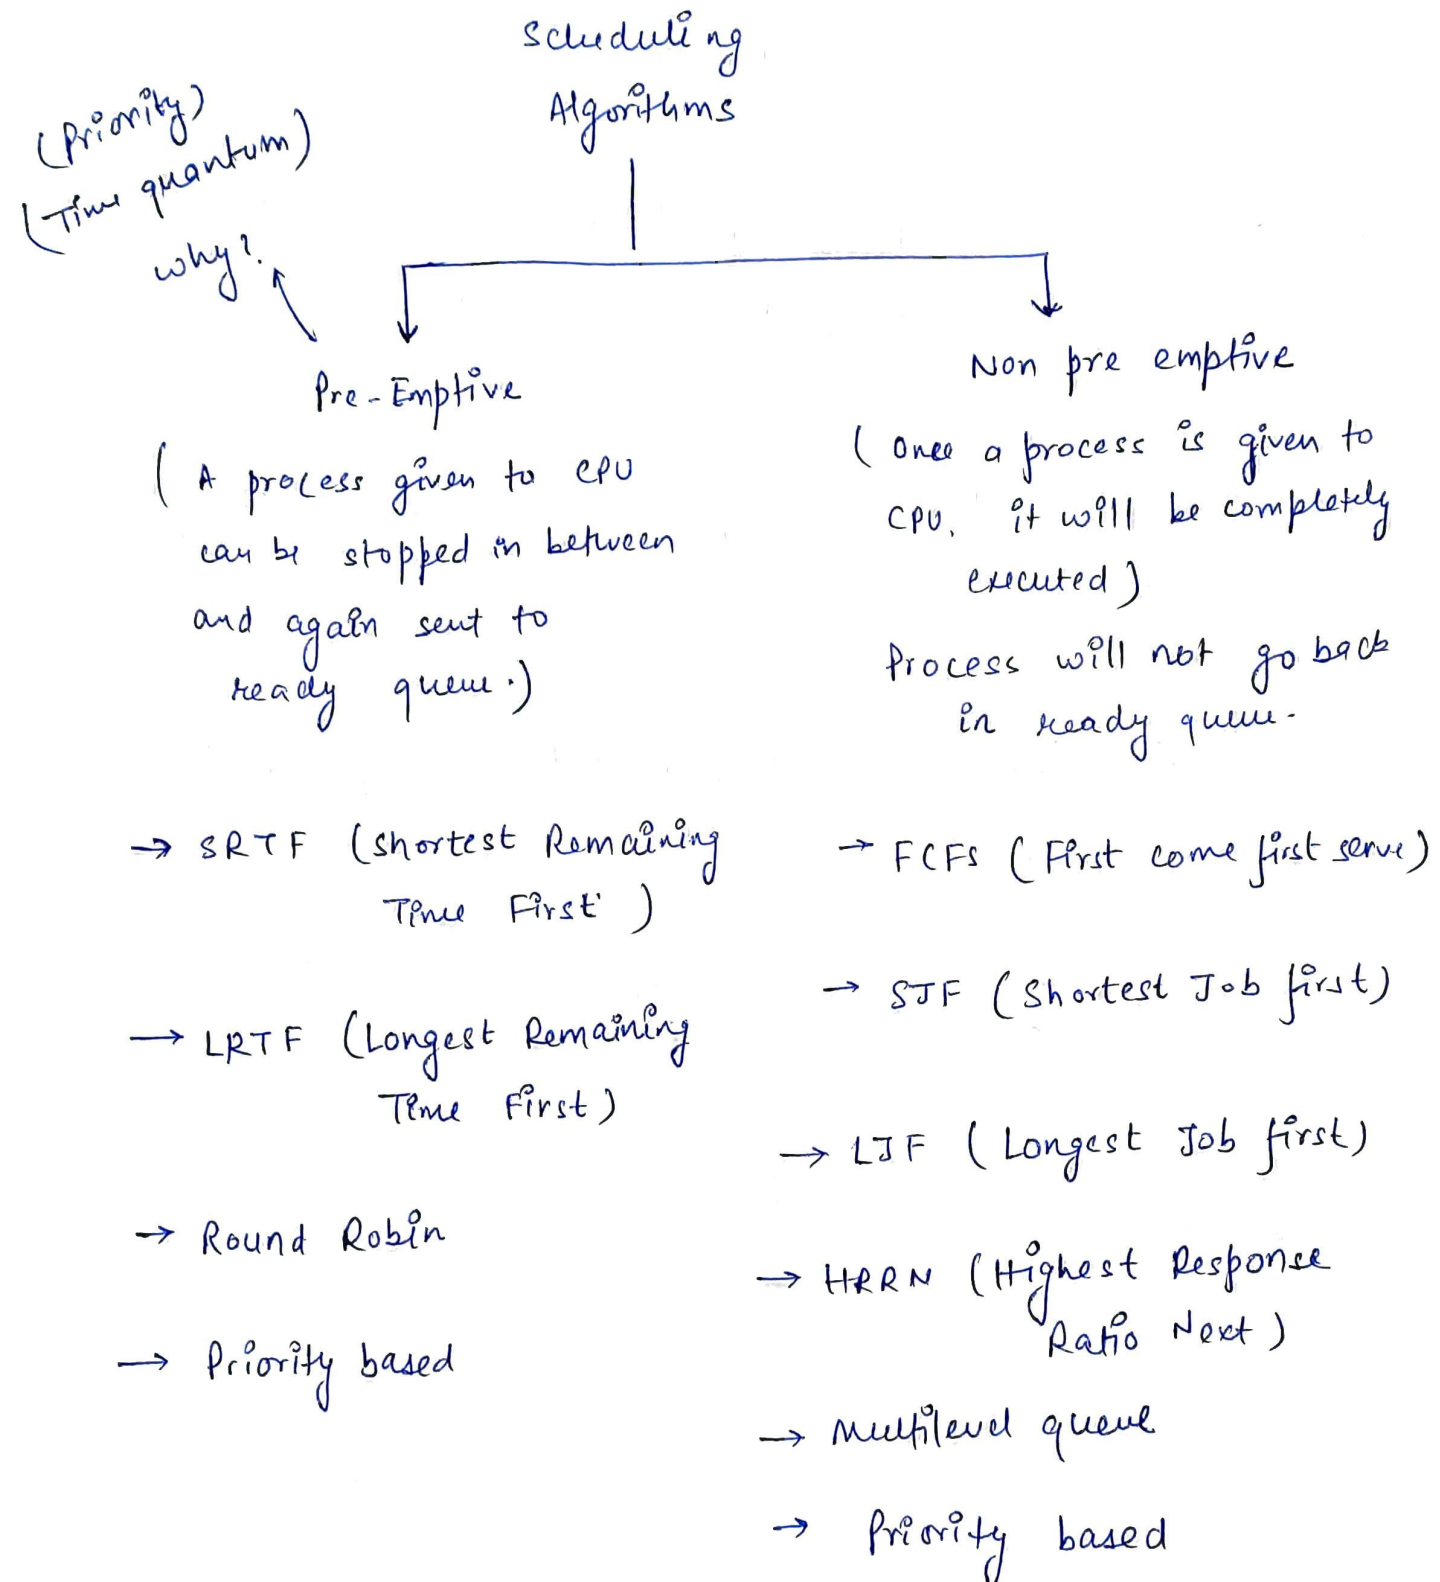 Scheduling
Algorithms
(Priority)
(Time quantum)
why?
Pre-Emptive
(A process given to CPU
can be stopped in between
and again sent to
ready queue.)
→ SRTF (Shortest Remaining
Time First)
→ LRTF (Longest Remaining
Time First)
→ Round Robin
→ Priority based
Non pre emptive
(Once a process is given to
CPU, it will be completely
executed)
Process will not go back
in ready queue.
→ FCFS (First come first serve)
→ SJF (Shortest Job first)
→ LJF (Longest Job first)
→ HRRN (Highest Response
Ratio Next)
→ Multilevel queue
→ Priority based